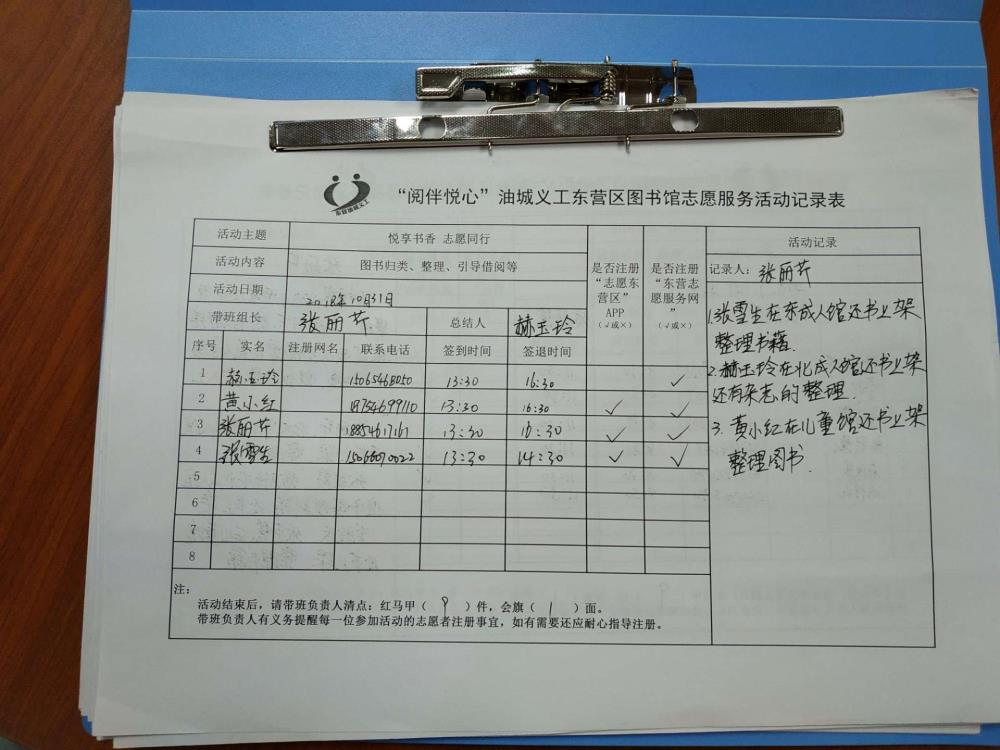 东营油城义工
“阅伴悦心”油城义工东营区图书馆志愿服务活动记录表
活动主题 悦享书香 志愿同行
活动内容 图书归类、整理、引导借阅等
活动日期 2018年10月31日
带班组长 张丽芹 总结人 赫玉玲
是否注册“志愿东营区”APP（√或×）
是否注册“东营志愿服务网”（√或×）
序号 实名 注册网名 联系电话 签到时间 签退时间
1 赫玉玲 15065468050 13:30 16:30 ✓
2 黄小红 18754699110 13:30 16:30 ✓ ✓
3 张丽芹 18854617167 13:30 16:30 ✓ ✓
4 张雪生 15066070022 13:30 14:30 ✓ ✓
5
6
7
8
注：
活动结束后，请带班负责人清点：红马甲（ 9 ）件，会旗（ 1 ）面。
带班负责人有义务提醒每一位参加活动的志愿者注册事宜，如有需要还应耐心指导注册。
活动记录
记录人：张丽芹
1.张雪生在东成人馆还书上架
整理书籍.
2.赫玉玲在北成人馆还书上架
还有杂志的整理.
3.黄小红在儿童馆还书上架
整理图书.